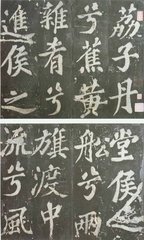 荔子丹
兮蕉黃
雜肴兮
進侯之
堂侯之
船兮兩
旗渡中
流兮風